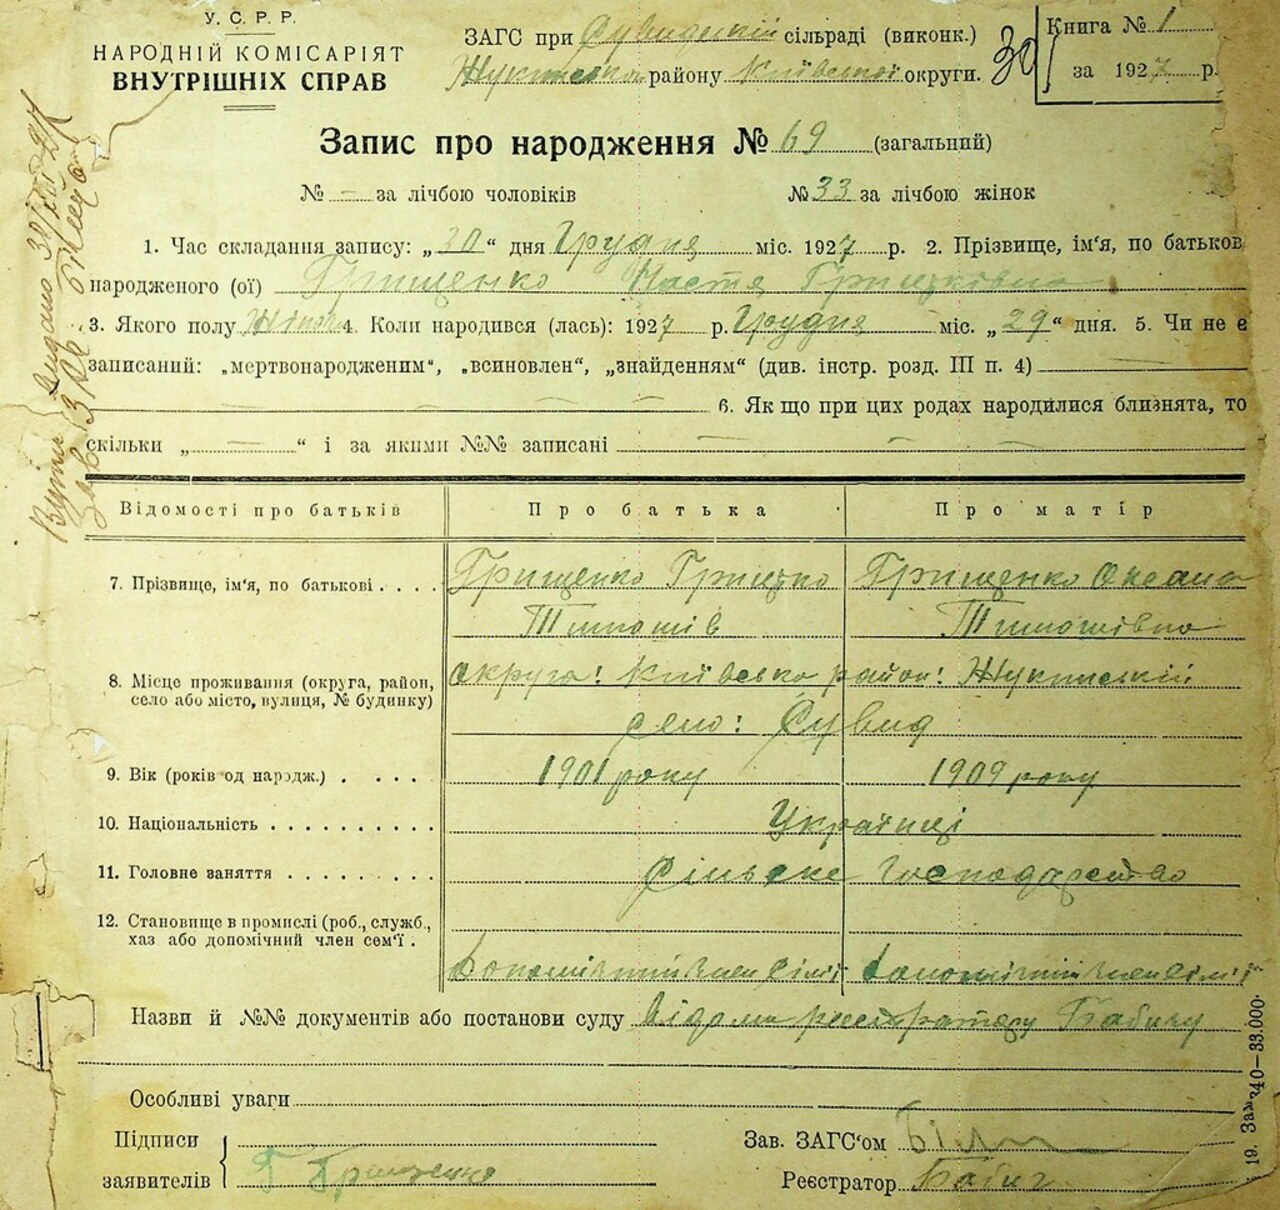 У. С. Р. Р.
НАРОДНІЙ КОМІСАРІЯТ
ВНУТРІШНІХ СПРАВ
ЗАГС при Сувидській сільраді (виконк.)
району Київської округи.
30
Книга № 1
за 1927 р.
Запис про народження № 69 (загальний)
№ — за лічбою чоловіків № 33 за лічбою жінок
1. Час складання запису: „30“ дня Грудня міс. 1927 р. 2. Прізвище, ім'я, по батьков
народженого (ої) Грищенко Настя Грицьковна
3. Якого полу Жіноч 4. Коли народився (лась): 1927 р. Грудня міс. „29“ дня. 5. Чи не є
записаний: „мертвонародженим“, „всиновлен“, „знайденням“ (див. інстр. розд. III п. 4) —
— — — — 6. Як що при цих родах народилися близнята, то
скільки „—“ і за якими №№ записані — — —
Відомості про батьків Про батька Про матір
7. Прізвище, ім'я, по батькові . . . . Грищенко Грицько Грищенко Оксана
Тимошів Тимошівна
8. Місце проживання (округа, район, округа: Київська район: Жукинській
село або місто, вулиця, № будинку) село: Сувид
9. Вік (років од народж.) . . . . . 1901 року 1909 року
10. Національність . . . . . . . . . . Українці
11. Головне заняття . . . . . . . . . Сільске Господарство
12. Становище в промислі (роб., служб.,
хаз або допомічний член сем'ї .
допомічний член сімї допомічний член сім'ї
Назви й №№ документів або постанови суду відома реєстратору Бабичу
Особливі уваги
Підписи Зав. ЗАГС'ом
заявителів Г Грищенко Реєстратор Бабич